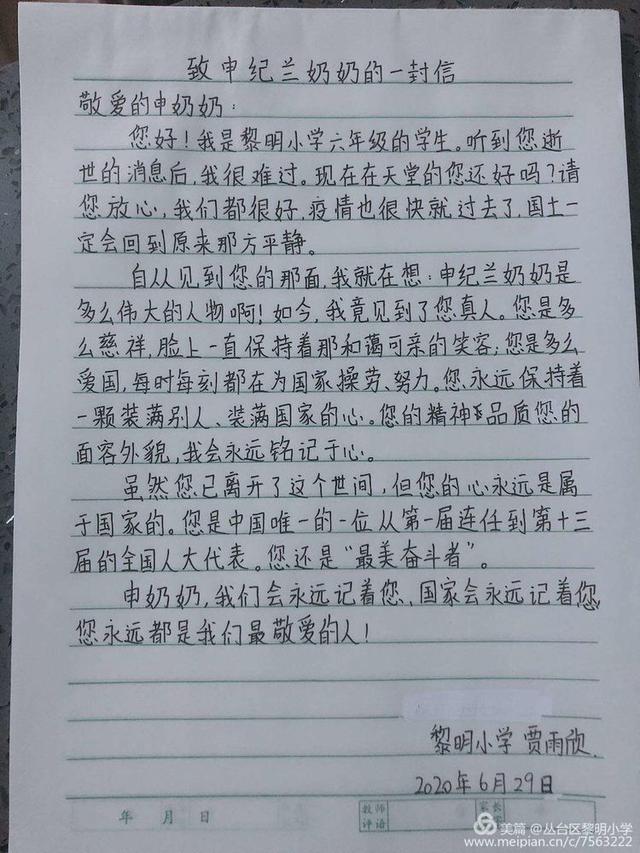 致申纪兰奶奶的一封信
敬爱的申奶奶：
您好！我是黎明小学六年级的学生。听到您逝
世的消息后，我很难过。现在在天堂的您还好吗？请
您放心，我们都很好，疫情也很快就过去了，国土一
定会回到原来那方平静。
自从见到您的那面，我就在想：申纪兰奶奶是
多么伟大的人物啊！如今，我竟见到了您真人。您是多
么慈祥，脸上一直保持着那和蔼可亲的笑容；您是多么
爱国，每时每刻都在为国家操劳、努力。您永远保持着
一颗装满别人、装满国家的心。您的精神品质您的
面容外貌，我会永远铭记于心。
虽然您已离开了这个世间，但您的心永远是属
于国家的。您是中国唯一的一位从第一届连任到第十三
届的全国人大代表。您还是“最美奋斗者”。
申奶奶，我们会永远记着您，国家会永远记着您，
您永远都是我们最敬爱的人！
黎明小学 贾雨欣
2020年6月29日
年 月 日
教师
评语
家长
美篇 @丛台区黎明小学
www.meipian.cn/c/7563222